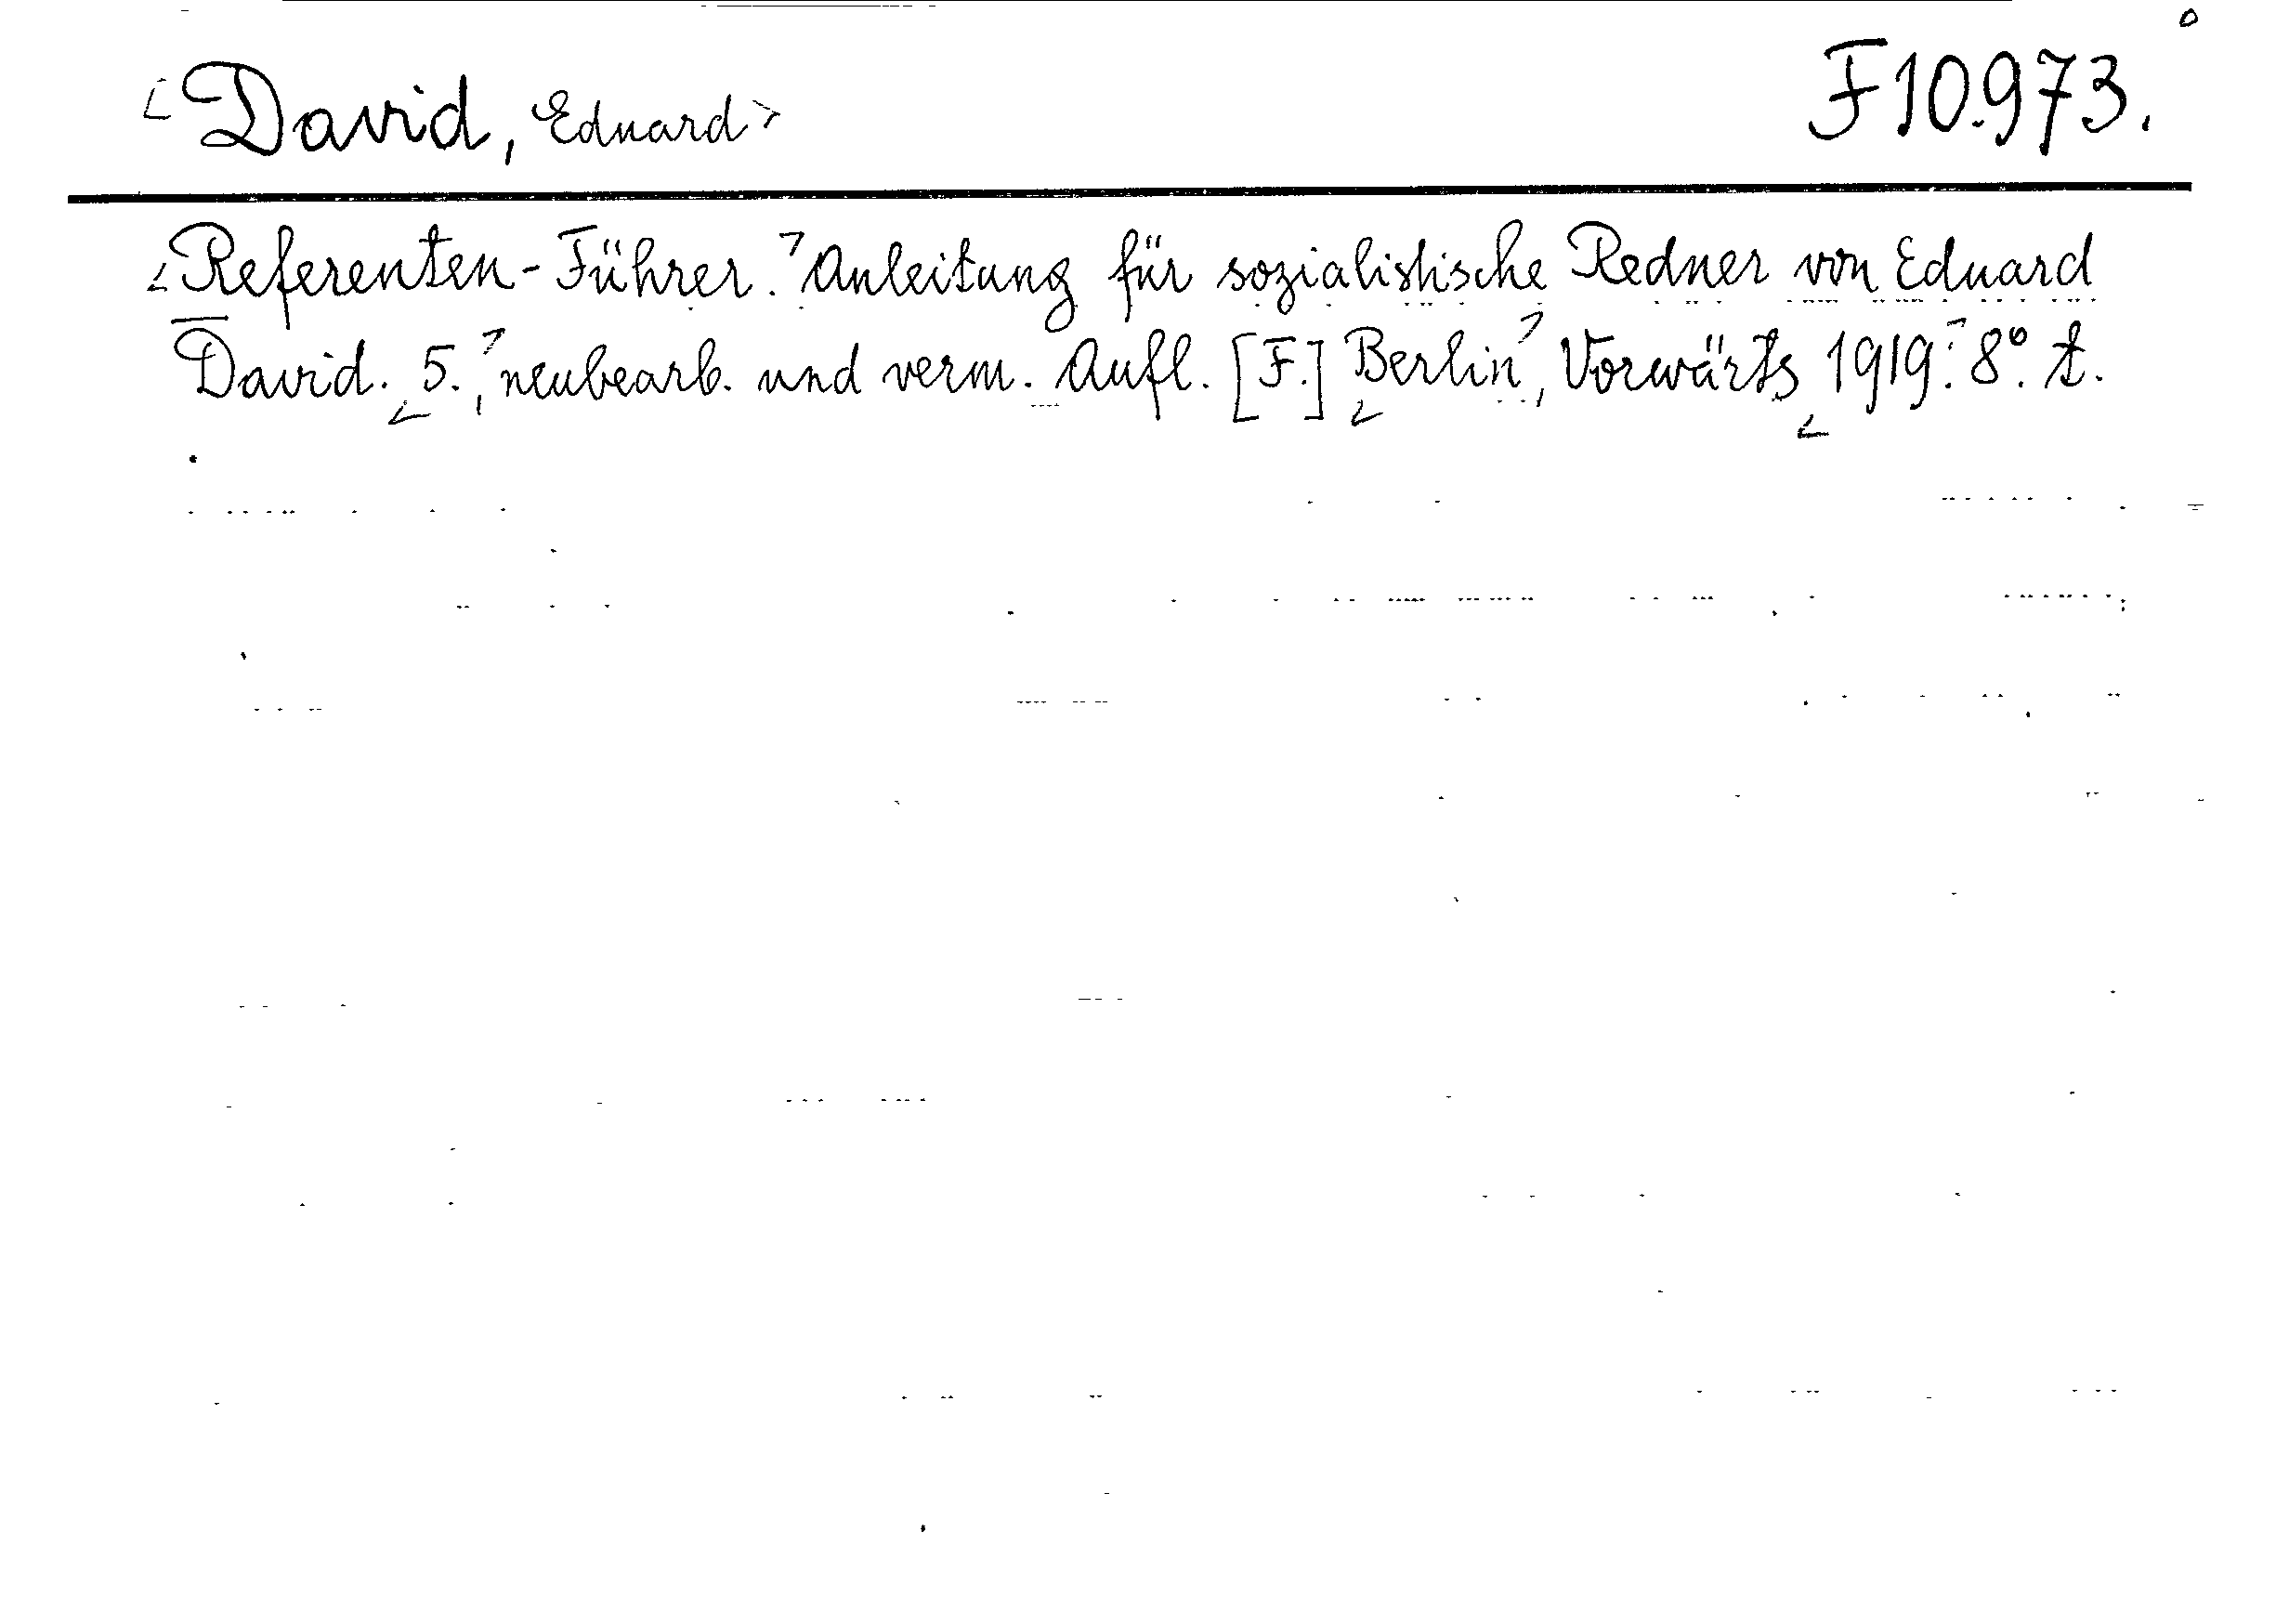 David, Eduard
F 10.973.
Referenten-Führer. Anleitung für sozialistische Redner von Eduard
David. 5., neubearb. und verm. Aufl. [F.] Berlin, Vorwärts 1919. 8°. t.